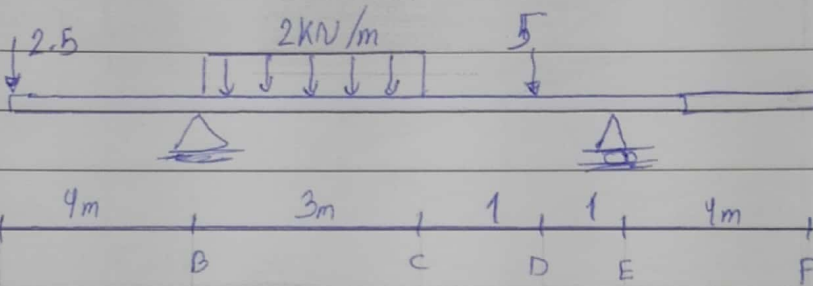 2.5 2KN/m 5
4m 3m 1 1 4m
B C D E F